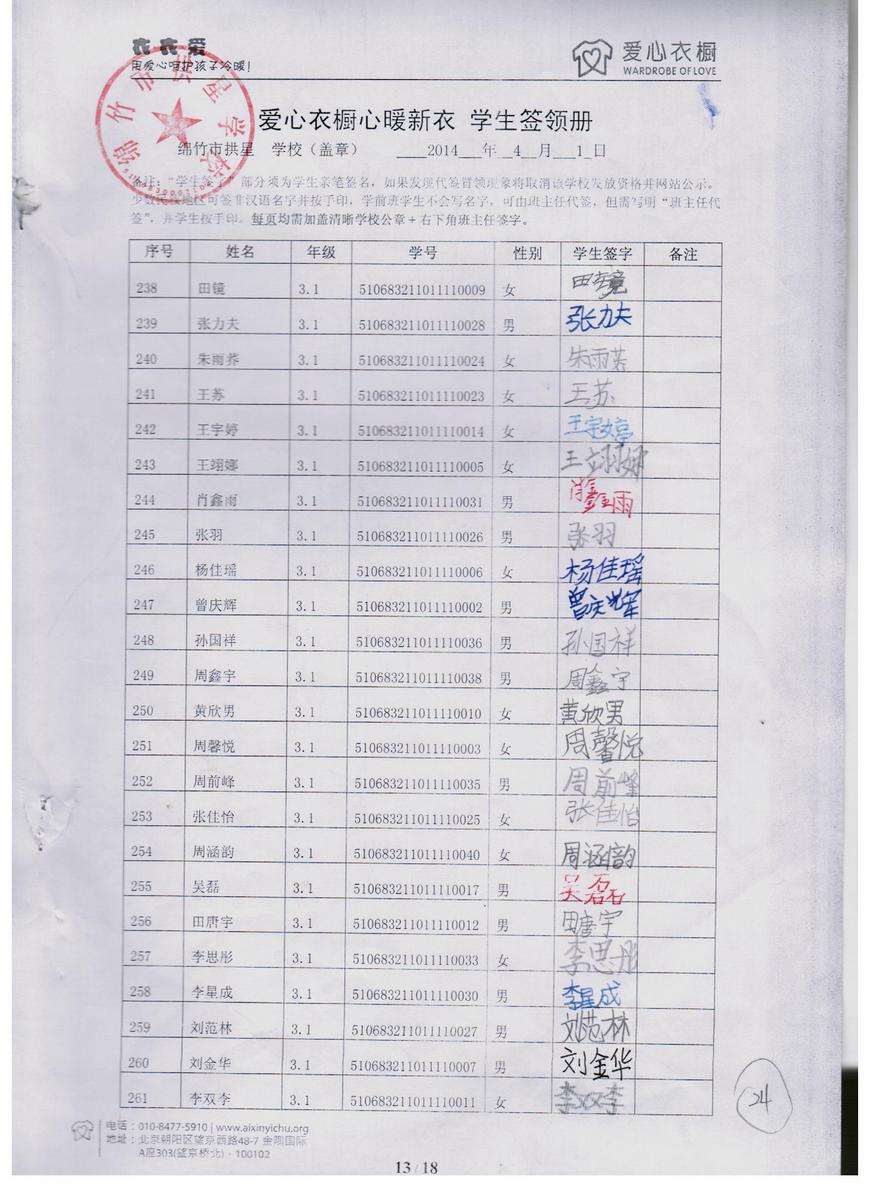 衣衣爱
用爱心呵护孩子冷暖！
爱心衣橱
WARDROBE OF LOVE
爱心衣橱心暖新衣 学生签领册
绵竹市拱星 学校（盖章） 2014 年 4 月 1 日
绵竹市拱星学校
备注：“学生签字”部分须为学生亲笔签名，如果发现代签冒领现象将取消该学校发放资格并网站公示。
少数民族地区可签非汉语名字并按手印，学前班学生不会写名字，可由班主任代签，但需写明“班主任代
签”，并学生按手印。每页均需加盖清晰学校公章+右下角班主任签字。
序号 姓名 年级 学号 性别 学生签字 备注
238 田镜 3.1 510683211011110009 女 田镜
239 张力夫 3.1 510683211011110028 男 张力夫
240 朱雨荞 3.1 510683211011110024 女 朱雨荞
241 王苏 3.1 510683211011110023 女 王苏
242 王宇婷 3.1 510683211011110014 女 王宇婷
243 王翊娜 3.1 510683211011110005 女 王翊娜
244 肖鑫雨 3.1 510683211011110031 男 肖鑫雨
245 张羽 3.1 510683211011110026 男 张羽
246 杨佳瑶 3.1 510683211011110006 女 杨佳瑶
247 曾庆辉 3.1 510683211011110002 男 曾庆辉
248 孙国祥 3.1 510683211011110036 男 孙国祥
249 周鑫宇 3.1 510683211011110038 男 周鑫宇
250 黄欣男 3.1 510683211011110010 女 黄欣男
251 周馨悦 3.1 510683211011110003 女 周馨悦
252 周前峰 3.1 510683211011110035 男 周前峰
253 张佳怡 3.1 510683211011110025 女 张佳怡
254 周涵韵 3.1 510683211011110040 女 周涵韵
255 吴磊 3.1 510683211011110017 男 吴磊
256 田唐宇 3.1 510683211011110012 男 田唐宇
257 李思彤 3.1 510683211011110033 女 李思彤
258 李星成 3.1 510683211011110030 男 李星成
259 刘范林 3.1 510683211011110027 男 刘范林
260 刘金华 3.1 510683211011110007 男 刘金华
261 李双李 3.1 510683211011110011 女 李双李
24
电话：010-8477-5910 | www.aixinyichu.org
地址：北京朝阳区望京西路48-7 金隅国际
A座303(望京桥北)·100102
13 / 18